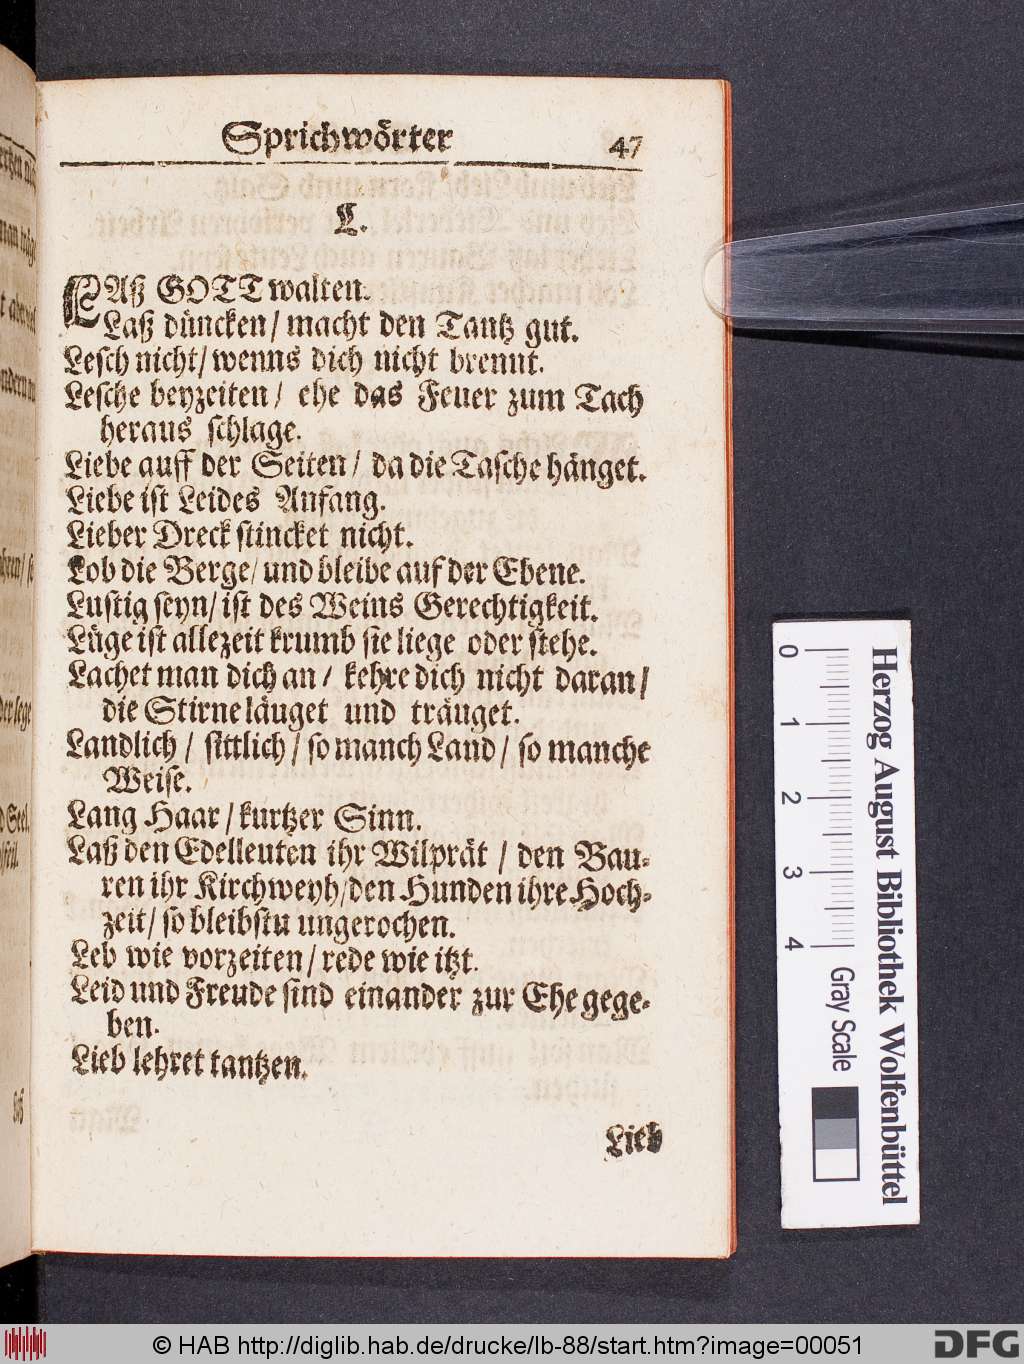 Sprichwörter 47
L.
LAß GOTT walten.
Laß düncken / macht den Tantz gut.
Lesch nicht / wenns dich nicht brennt.
Lesche beyzeiten / ehe das Feuer zum Tach
heraus schlage.
Liebe auff der Seiten / da die Tasche hänget.
Liebe ist Leides Anfang.
Lieber Dreck stincket nicht.
Lob die Berge / und bleibe auf der Ebene.
Lustig seyn / ist des Weins Gerechtigkeit.
Lüge ist allezeit krumb sie liege oder stehe.
Lachet man dich an / kehre dich nicht daran /
die Stirne läuget und träuget.
Landlich / sittlich / so manch Land / so manche
Weise.
Lang Haar / kurtzer Sinn.
Laß den Edelleuten ihr Wilprät / den Bau-
ren ihr Kirchweyh / den Hunden ihre Hoch-
zeit / so bleibstu ungerochen.
Leb wie vorzeiten / rede wie itzt.
Leid und Freude sind einander zur Ehe gege-
ben.
Lieb lehret tantzen.
Lieb
0 1 2 3 4 Gray Scale
Herzog August Bibliothek Wolfenbüttel
© HAB http://diglib.hab.de/drucke/lb-88/start.htm?image=00051
DFG